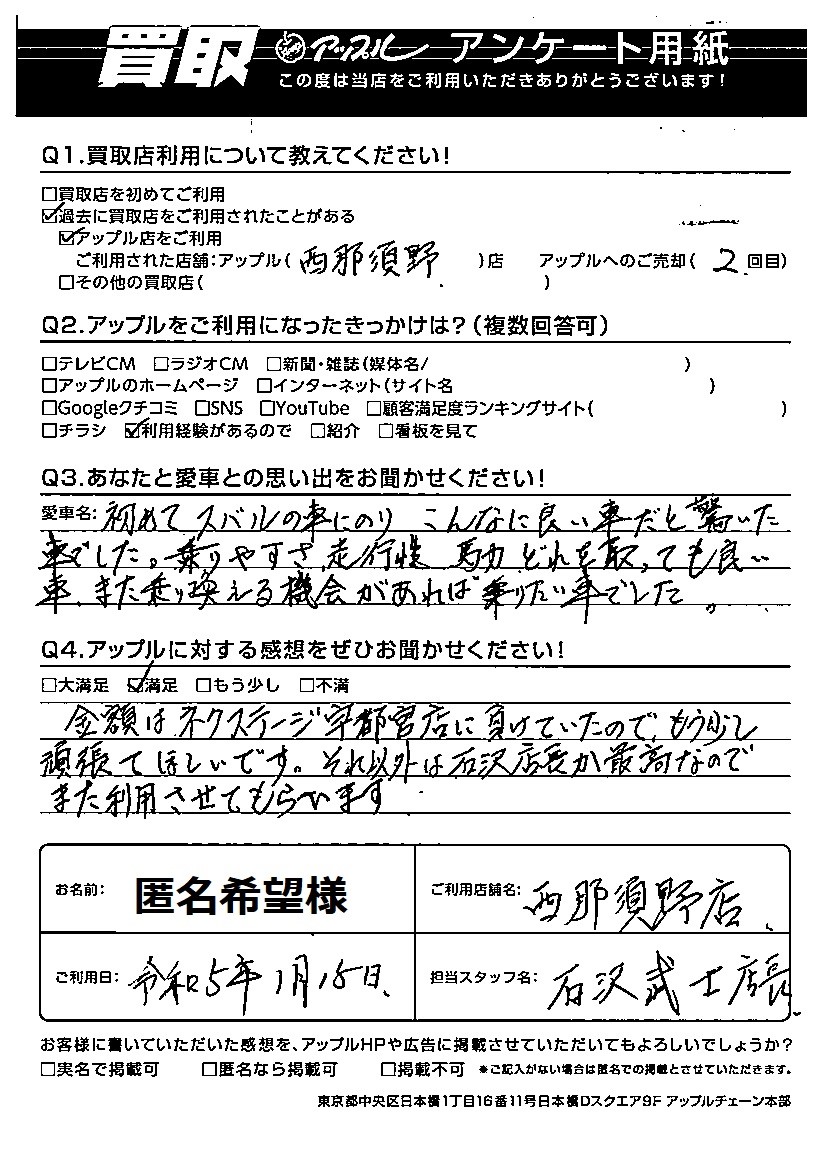 買取 アップル アンケート用紙
この度は当店をご利用いただきありがとうございます!
Q1.買取店利用について教えてください!
□買取店を初めてご利用
☑過去に買取店をご利用されたことがある
☑アップル店をご利用
ご利用された店舗:アップル( 西那須野 )店 アップルへのご売却( 2 回目)
□その他の買取店( )
Q2.アップルをご利用になったきっかけは?(複数回答可)
□テレビCM □ラジオCM □新聞・雑誌(媒体名/ )
□アップルのホームページ □インターネット(サイト名 )
□Googleクチコミ □SNS □YouTube □顧客満足度ランキングサイト( )
□チラシ ☑利用経験があるので □紹介 □看板を見て
Q3.あなたと愛車との思い出をお聞かせください!
愛車名: 初めてスバルの車にのり こんなに良い車だと驚いた
車でした。乗りやすさ、走行性 馬力 どれを取っても良い
車、また乗り換える機会があれば乗りたい車でした。
Q4.アップルに対する感想をぜひお聞かせください!
□大満足 ☑満足 □もう少し □不満
金額はネクステージ宇都宮店に負けていたので、もう少し
頑張てほしいです。それ以外は石沢店長が最高なので
また利用させてもらいます
お名前: 匿名希望様 ご利用店舗名: 西那須野店
ご利用日: 令和5年1月15日 担当スタッフ名: 石沢武士店長
お客様に書いていただいた感想を、アップルHPや広告に掲載させていただいてもよろしいでしょうか?
□実名で掲載可 □匿名なら掲載可 □掲載不可 *ご記入がない場合は匿名での掲載とさせていただきます。
東京都中央区日本橋1丁目16番11号日本橋Dスクエア9F アップルチェーン本部